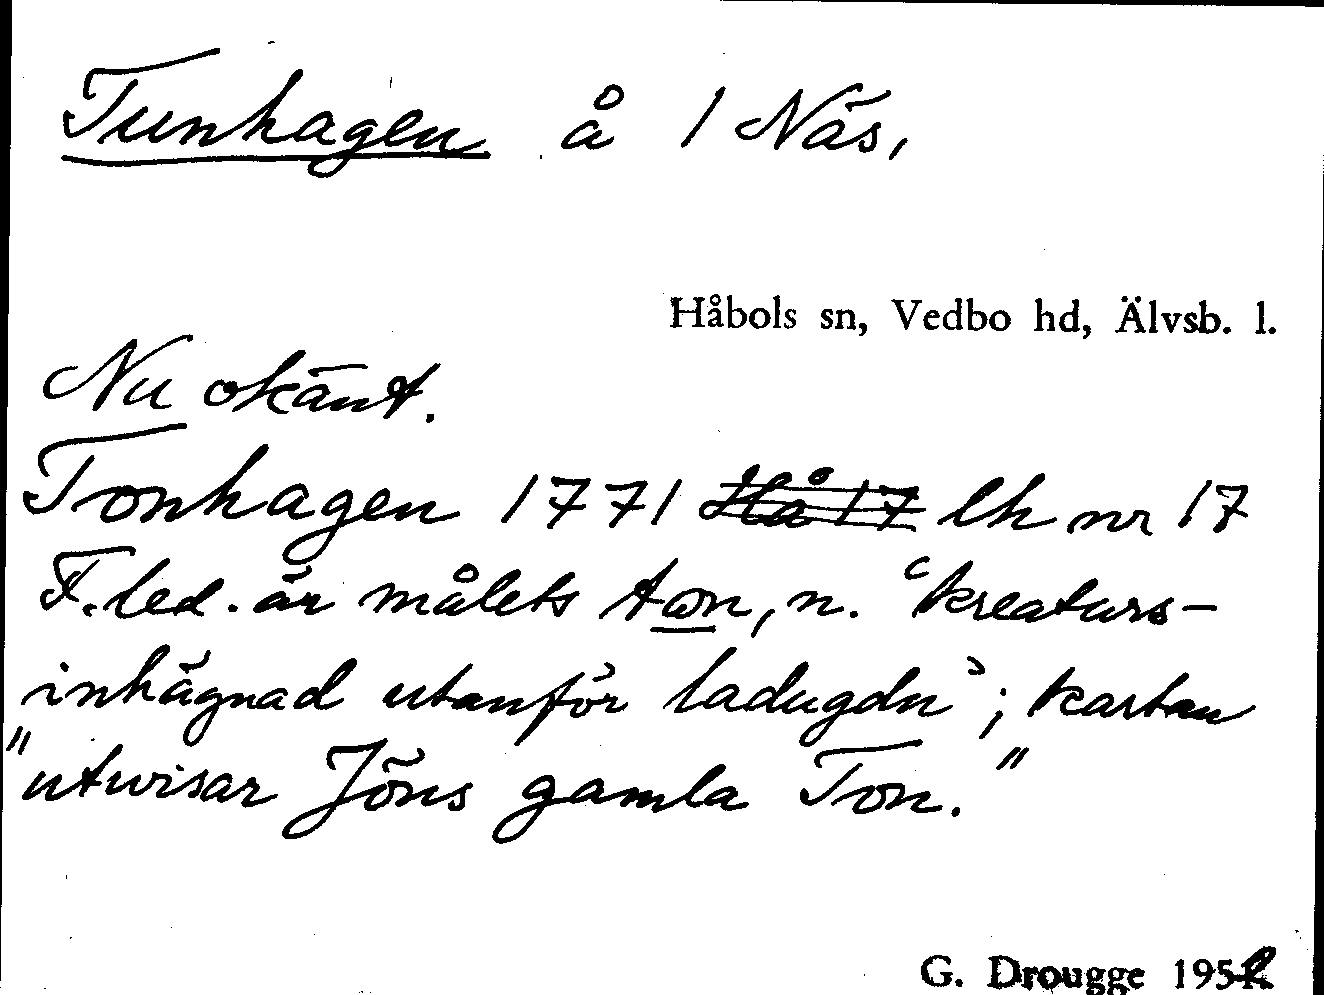 Tunhagen å 1 Näs,
Håbols sn, Vedbo hd, Älvsb. l.
Nu okänt.
Tonhagen 1771 Hå 17 lh nr 17
F.led. är målets ton, n. ‘kreaturs-
inhägnad utanför ladugdn’; kartan
"utwisar Jöns gamla Ton."
G. Drougge 1952